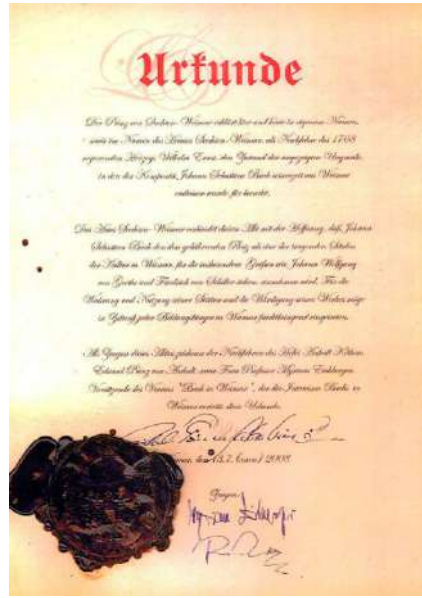 Urkunde
Der Prinz von Sachsen-Weimar erklärt hier und heute in eigenem Namen,
sowie im Namen des Hauses Sachsen-Weimar, als Nachfahre des 1708
regierenden Herzogs Wilhelm Ernst, den Zustand der
in der der Komponist Johann Sebastian Bach seinerzeit aus Weimar
entlassen wurde, für beendet.
Das Haus Sachsen-Weimar verbindet diesen Akt mit der Hoffnung, daß Johann
Sebastian Bach den ihm gebührenden Platz als eine der tragenden Säulen
der Kultur in Weimar, für die insbesondere Größen wie Johann Wolfgang
von Goethe und Friedrich von Schiller stehen, einnehmen wird. Für die
Wahrung und Nutzung seiner Stätten und die Würdigung seines Werkes möge
in Zukunft jeder in Weimar
Als Zeugen dieses Aktes zeichnen der Nachfahre des Hofes Anhalt-Köthen
Eduard Prinz von Anhalt, sowie Frau Professor Myriam Eichberger
Vorsitzende des Vereins "Bach in Weimar", der die Interessen Bachs in
Weimar vertritt, diese Urkunde.
Weimar, den 2008
Zeugen